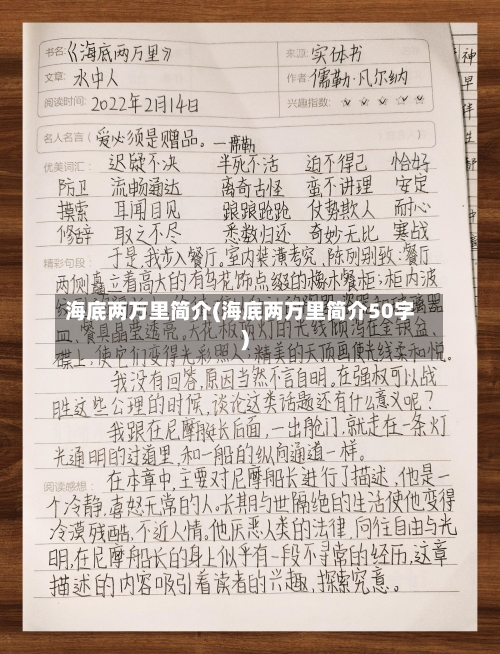 书名:《海底两万里》 来源: 实体书
文章: 水中人 作者: 儒勒·凡尔纳
阅读时间: 2022年2月14日 兴趣指数: ☆☆☆☆☆
名人名言( 爱必须是赠品。—席勒 )
优美词汇: 迟疑不决 半死不活 迫不得已 恰好
防卫 流畅通达 离奇古怪 蛮不讲理 安定
摸索 耳闻目见 踉踉跄跄 仗势欺人 耐心
修辞 取之不尽 悉数归还 奇妙无比 寒战
精彩句段: 于是,我步入餐厅。室内装潢考究,陈列别致:餐厅
两侧矗立着高大的有乌花饰点缀的橡木餐柜;柜内波
海底两万里简介(海底两万里简介50字
)
皿,餐具晶莹透亮。天花板
碟上,使它们变得光彩照人,精美的天顶画使光线柔和悦。
我没有回答,原因当然不言自明。在强权可以战
胜这些公理的时候,谈论这类话题还有什么意义呢?
我跟在尼摩艇长后面,一出舱门,就走在一条灯
光通明的过道里,和一船的纵向通道一样。
阅读感想: 在本章中,主要对尼摩船长进行了描述,他是一
个冷静,喜怒无常的人。长期与世隔绝的生活使他变得
冷漠残酷,不近人情。他厌恶人类的法律,向往自由与光
明,在尼摩船长的身上似乎有一段不寻常的经历,这章
描述的内容吸引着读者的兴趣,探索究意。
神
早
伴
生